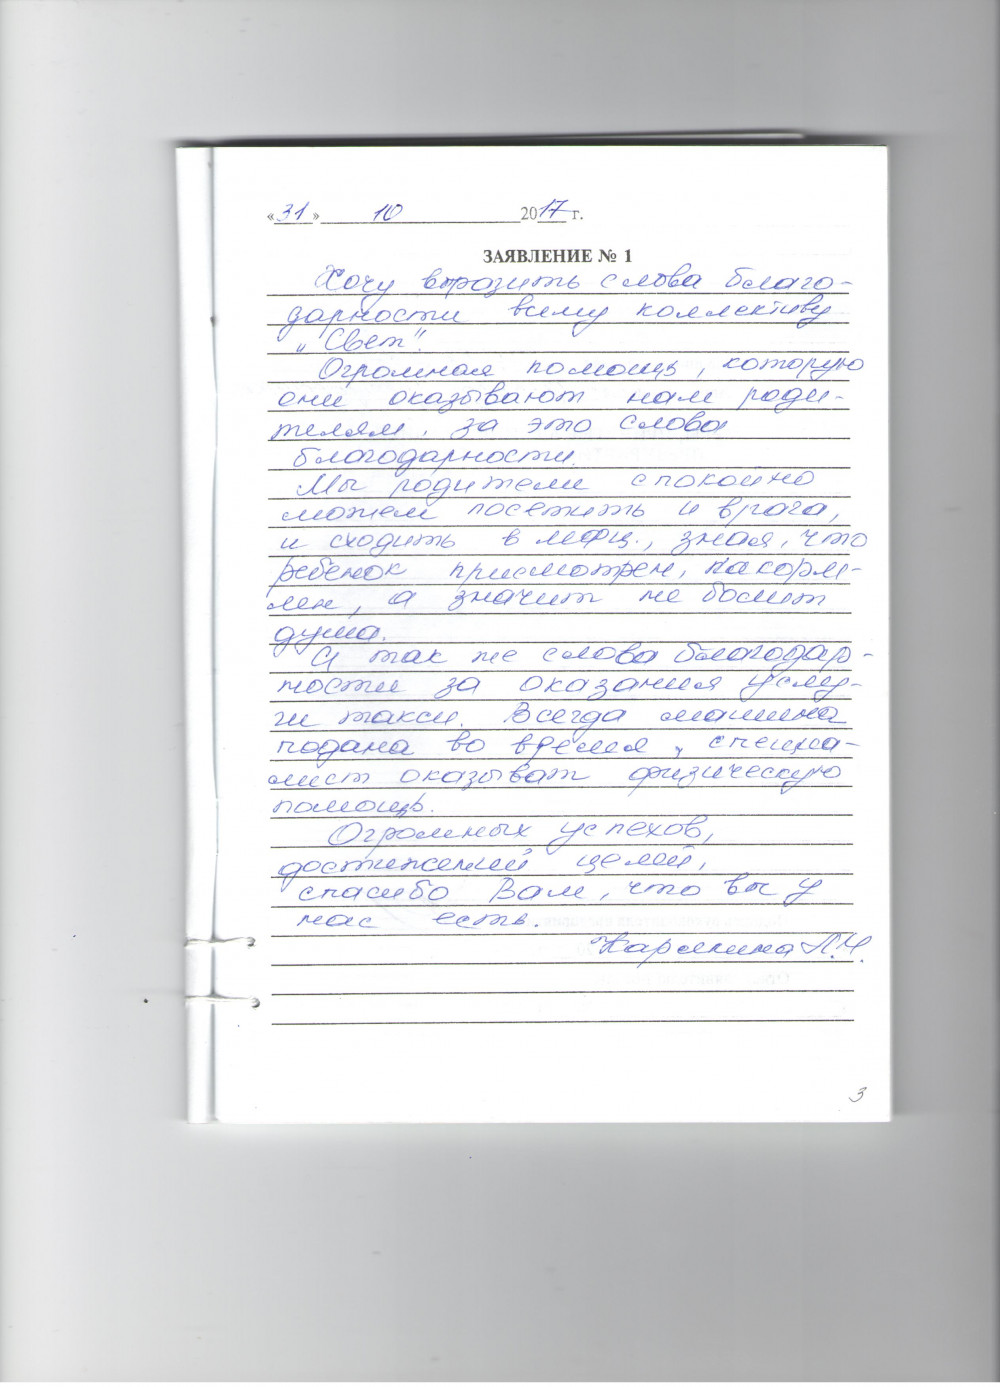 «31» 10 2017 г.
ЗАЯВЛЕНИЕ № 1
Хочу выразить слова благо-
дарности всему коллективу
„Свет".
Огромная помощь, которую
они оказывают нам роди-
телям, за это слова
благодарности.
Мы родители спокойно
можем посетить и врача,
и сходить в мфц., зная, что
ребенок присмотрен, накорм-
лен, а значит не болит
душа.
И так же слова благодар-
ности за оказания услу-
ги такси. Всегда машина
подана во время, специа-
лист оказыват физическую
помощь.
Огромных успехов,
достижений целей,
спасибо Вам, что вы у
нас есть.
Л.Н.
3